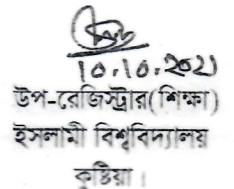 10.10.2021
উপ-রেজিস্ট্রার(শিক্ষা)
ইসলামী বিশ্ববিদ্যালয়
কুষ্টিয়া।